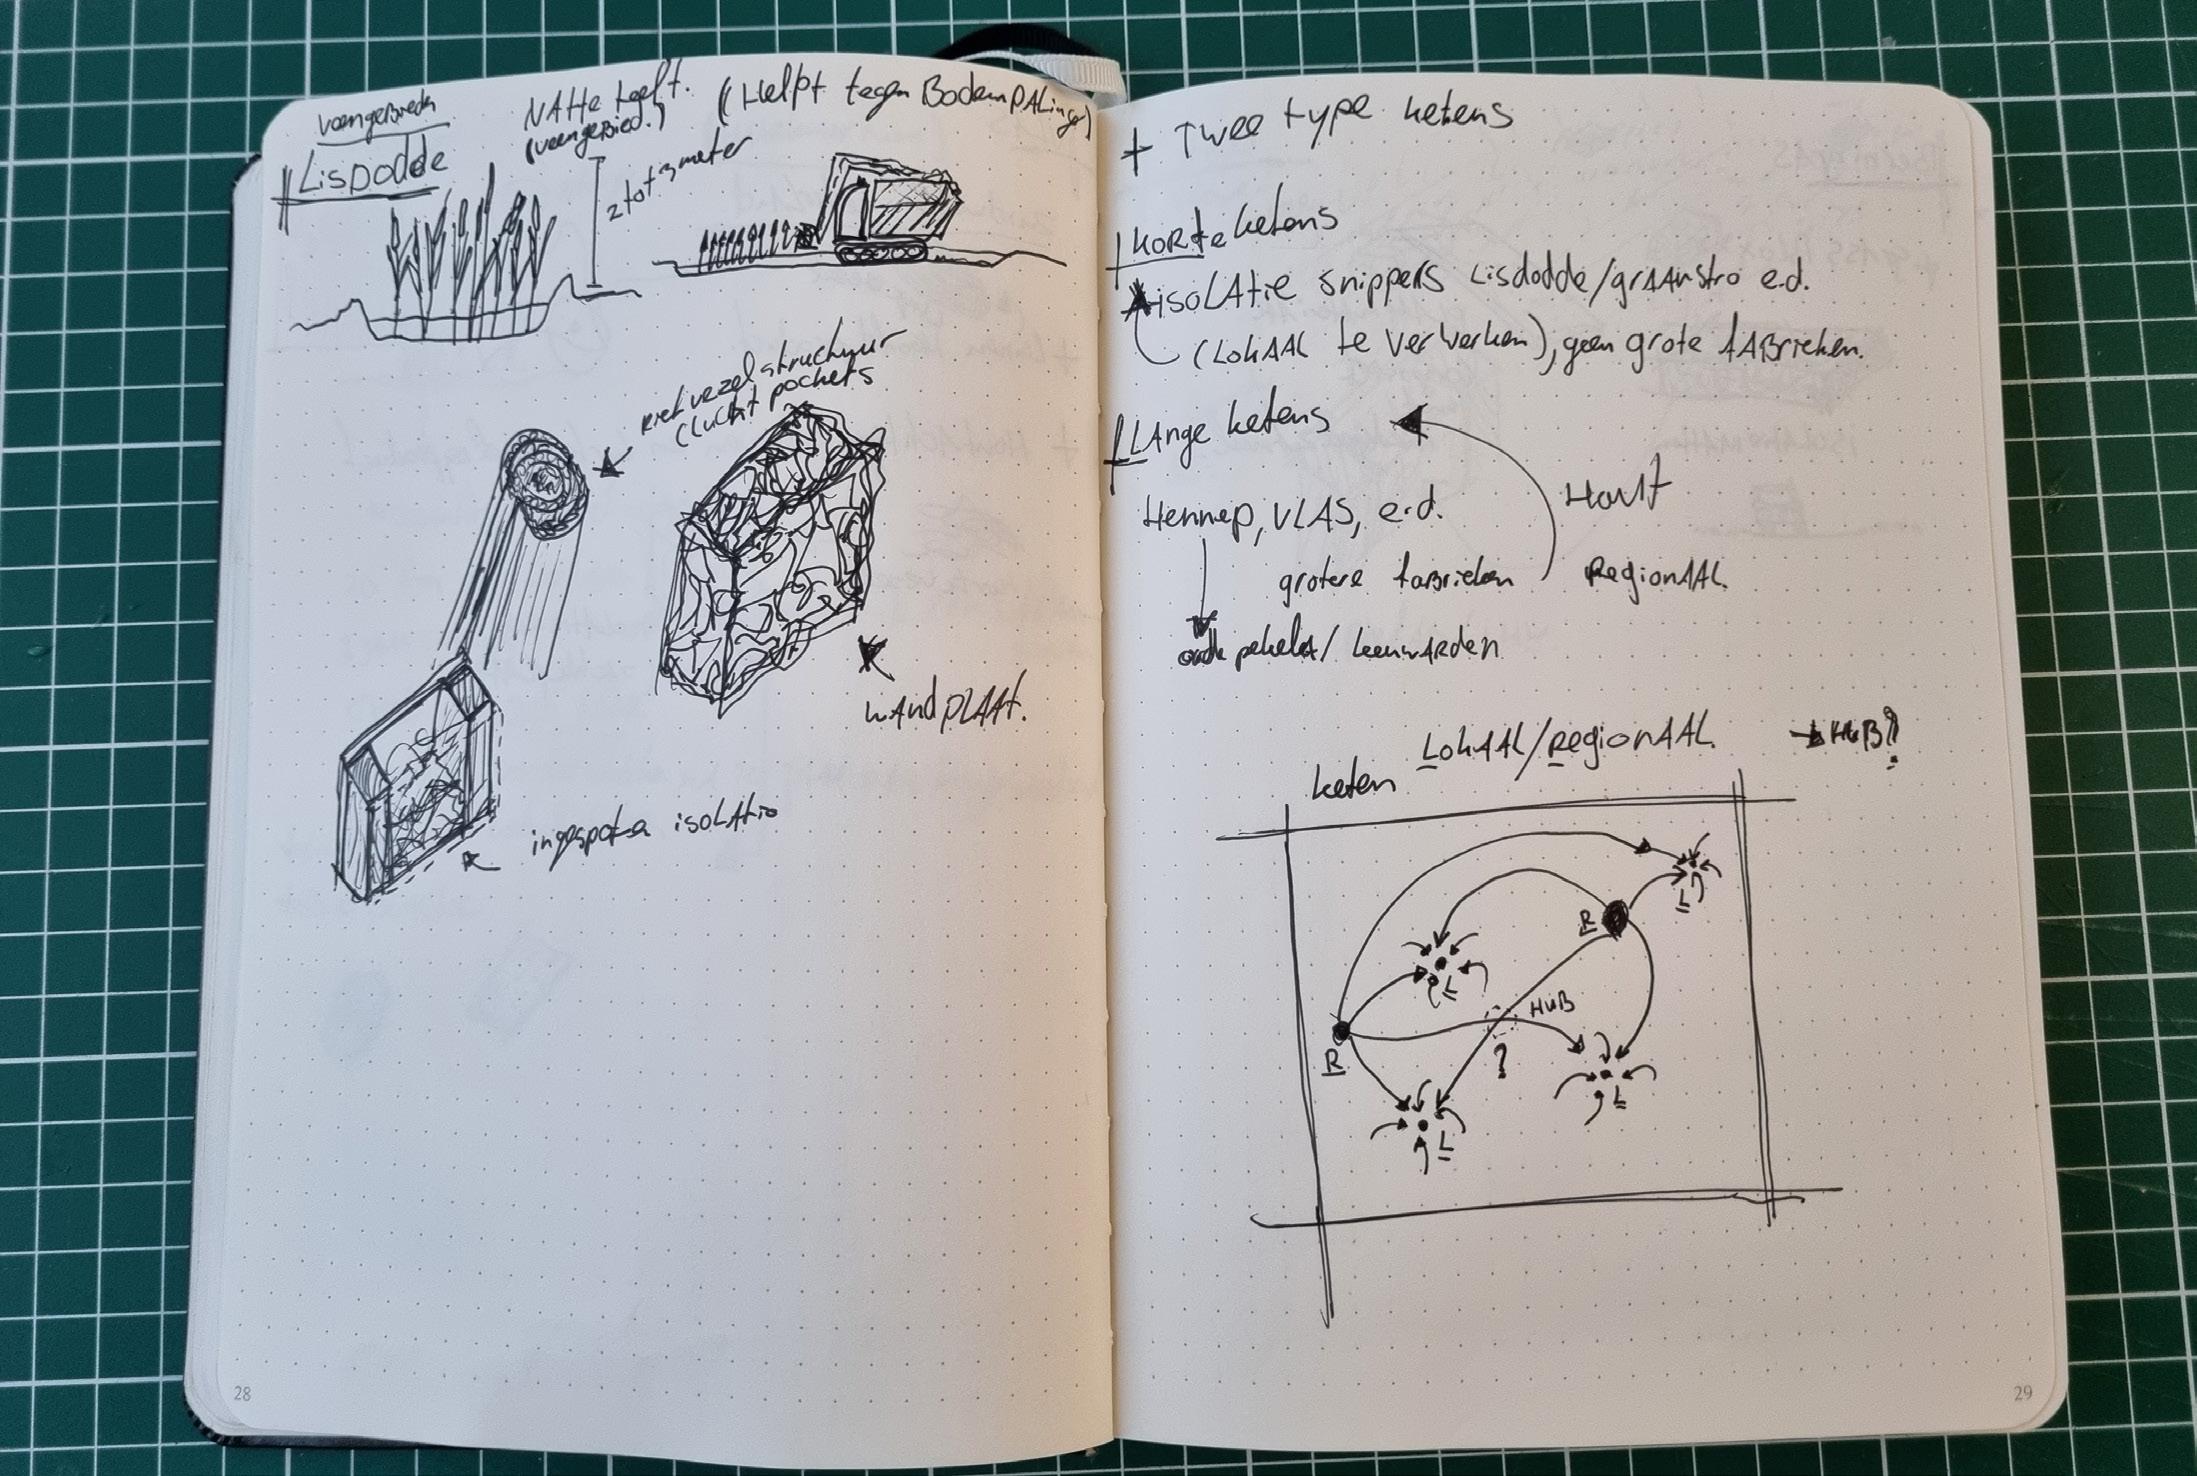 veengebieden
Lispodde
NAtte teelt.
(veengebied.)
(Helpt tegen BodemDALingen)
2 tot 3 meter
rietvezelstructuur
(lucht pockets
WANDPLAAT.
isolatie
28
+ Twee type ketens
+ korte ketens
isolAtie snippers Lisdodde/grAAnstro e.d.
(LokAAL te verwerken), geen grote fABrieken.
+ LAnge ketens
Hennep, VLAS, e.d.
grotere faBrieken
Hout
RegionAAL.
oude pekela / LeeuwARden
keten LokAAL/RegionAAL.
→ HUB?
L
R
L
HUB
?
R
L
L
29